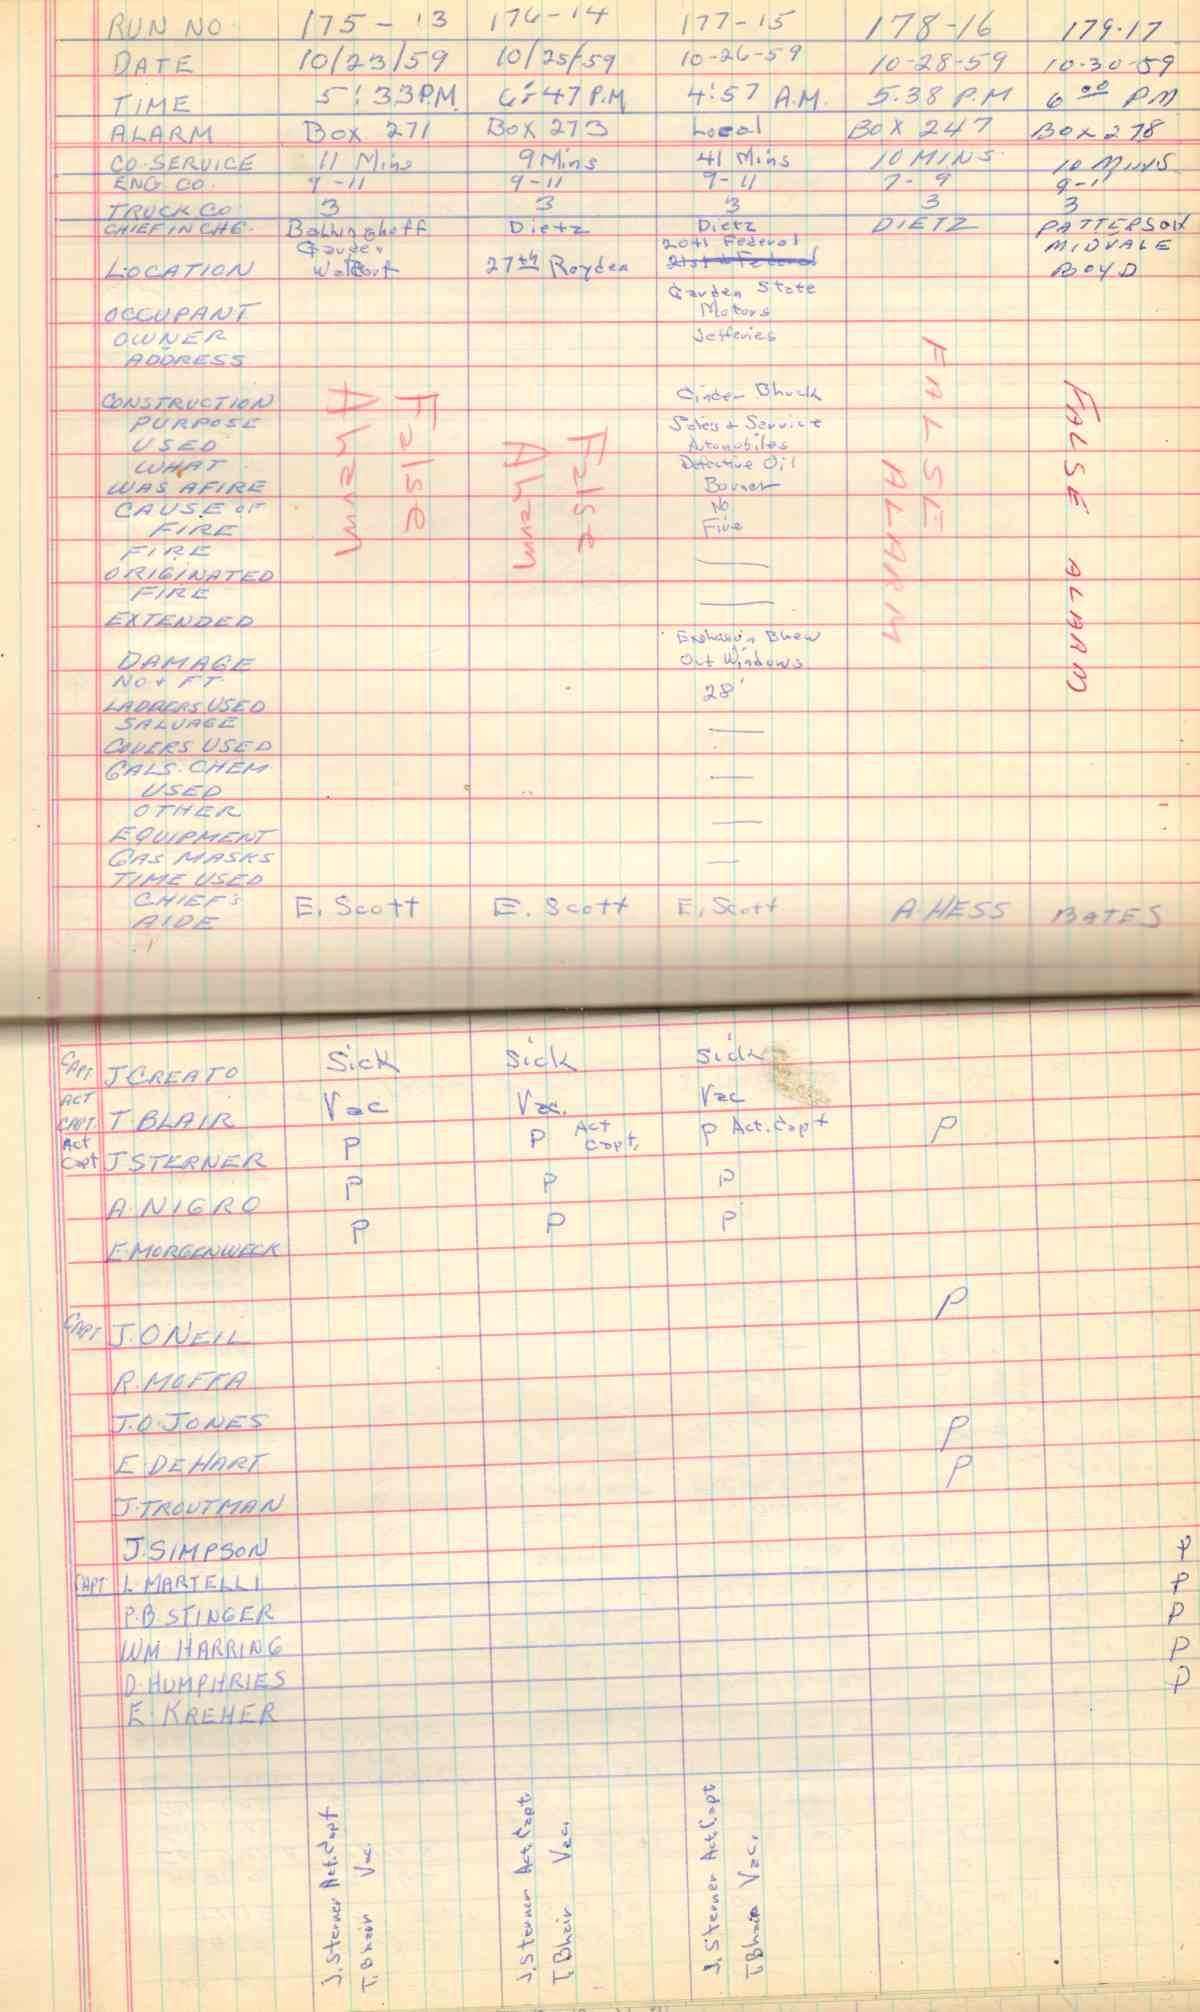 RUN NO. 175 - 13 176-14 177-15 178-16 179-17
DATE 10/23/59 10/25/59 10-26-59 10-28-59 10-30-59
TIME 5:33 P.M. 6:47 P.M 4:57 A.M. 5.38 P.M 6 00 PM
ALARM Box 271 Box 273 Local BOX 247 BOX 278
CO. SERVICE 11 Mins 9 Mins 41 Mins 10 MINS. 10 MINS
ENG CO. 9-11 9-11 9-11 7-9 9-11
TRUCK CO. 3 3 3 3 3
CHIEF IN CHG. Dietz Dietz DIETZ PATTERSON
20th Federal MIDVALE
LOCATION 27th Royden 21st & Federal BOYD
Garden State
OCCUPANT Motors
OWNER Jefferies
ADDRESS
CONSTRUCTION Cinder Block
PURPOSE Sales & Service
USED Automobiles
WHAT Defective Oil
WAS AFIRE Burner
CAUSE OF No
FIRE Fire
FIRE
ORIGINATED
FIRE
EXTENDED
Explosion Blew
DAMAGE Out Windows
NO & FT. 28'
LADDERS USED
SALVAGE
COVERS USED
GALS. CHEM.
USED
OTHER
EQUIPMENT
GAS MASKS
TIME USED
CHIEF'S
AIDE E. Scott E. Scott E. Scott A. HESS BATES
False
Alarm
False
Alarm
FALSE
ALARM
FALSE ALARM
CAPT J. CREATO Sick Sick Sick
ACT
CAPT. T. BLAIR Vac Vac. Vac
Act
Capt J STERNER P P Act Capt. P Act. Capt P
A. NIGRO P P P
E. MORGENWECK P P P
CAPT J. ONEIL P
R. MOFFA
J. O. JONES P
E. DEHART P
J. TROUTMAN
J. SIMPSON P
CAPT L. MARTELLI P
P. B. STINGER P
WM HARRING P
D. HUMPHRIES P
E. KREHER
J. Sterner Act. Capt
T. Blair Vac.
J. Sterner Act. Capt
T. Blair Vac.
J. Sterner Act. Capt
T. Blair Vac.